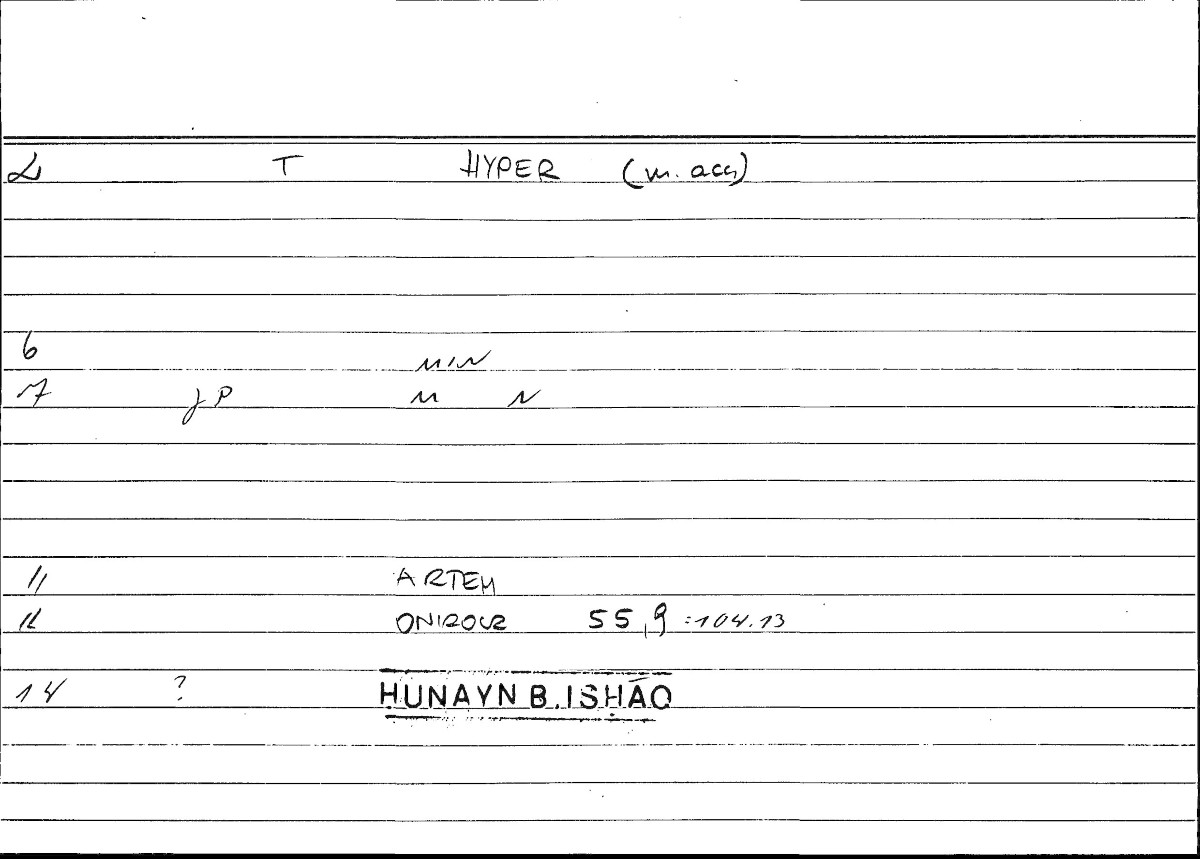 2 T HYPER (m. acc)
6 MIN
7 JP M N
11 ARTEM
12 ONIROCR 55,9 :104.13
14 ? ḤUNAYN B. ISḤĀQ